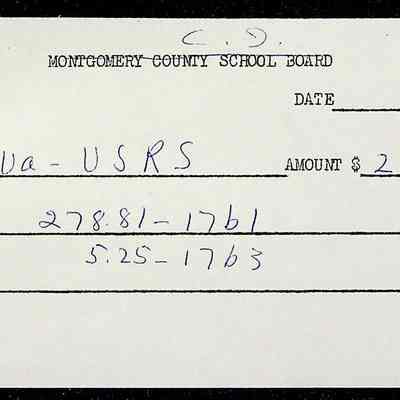 C. D.
MONTGOMERY COUNTY SCHOOL BOARD
DATE
Va - USRS AMOUNT $ 2
278.81-1761
5.25-1763